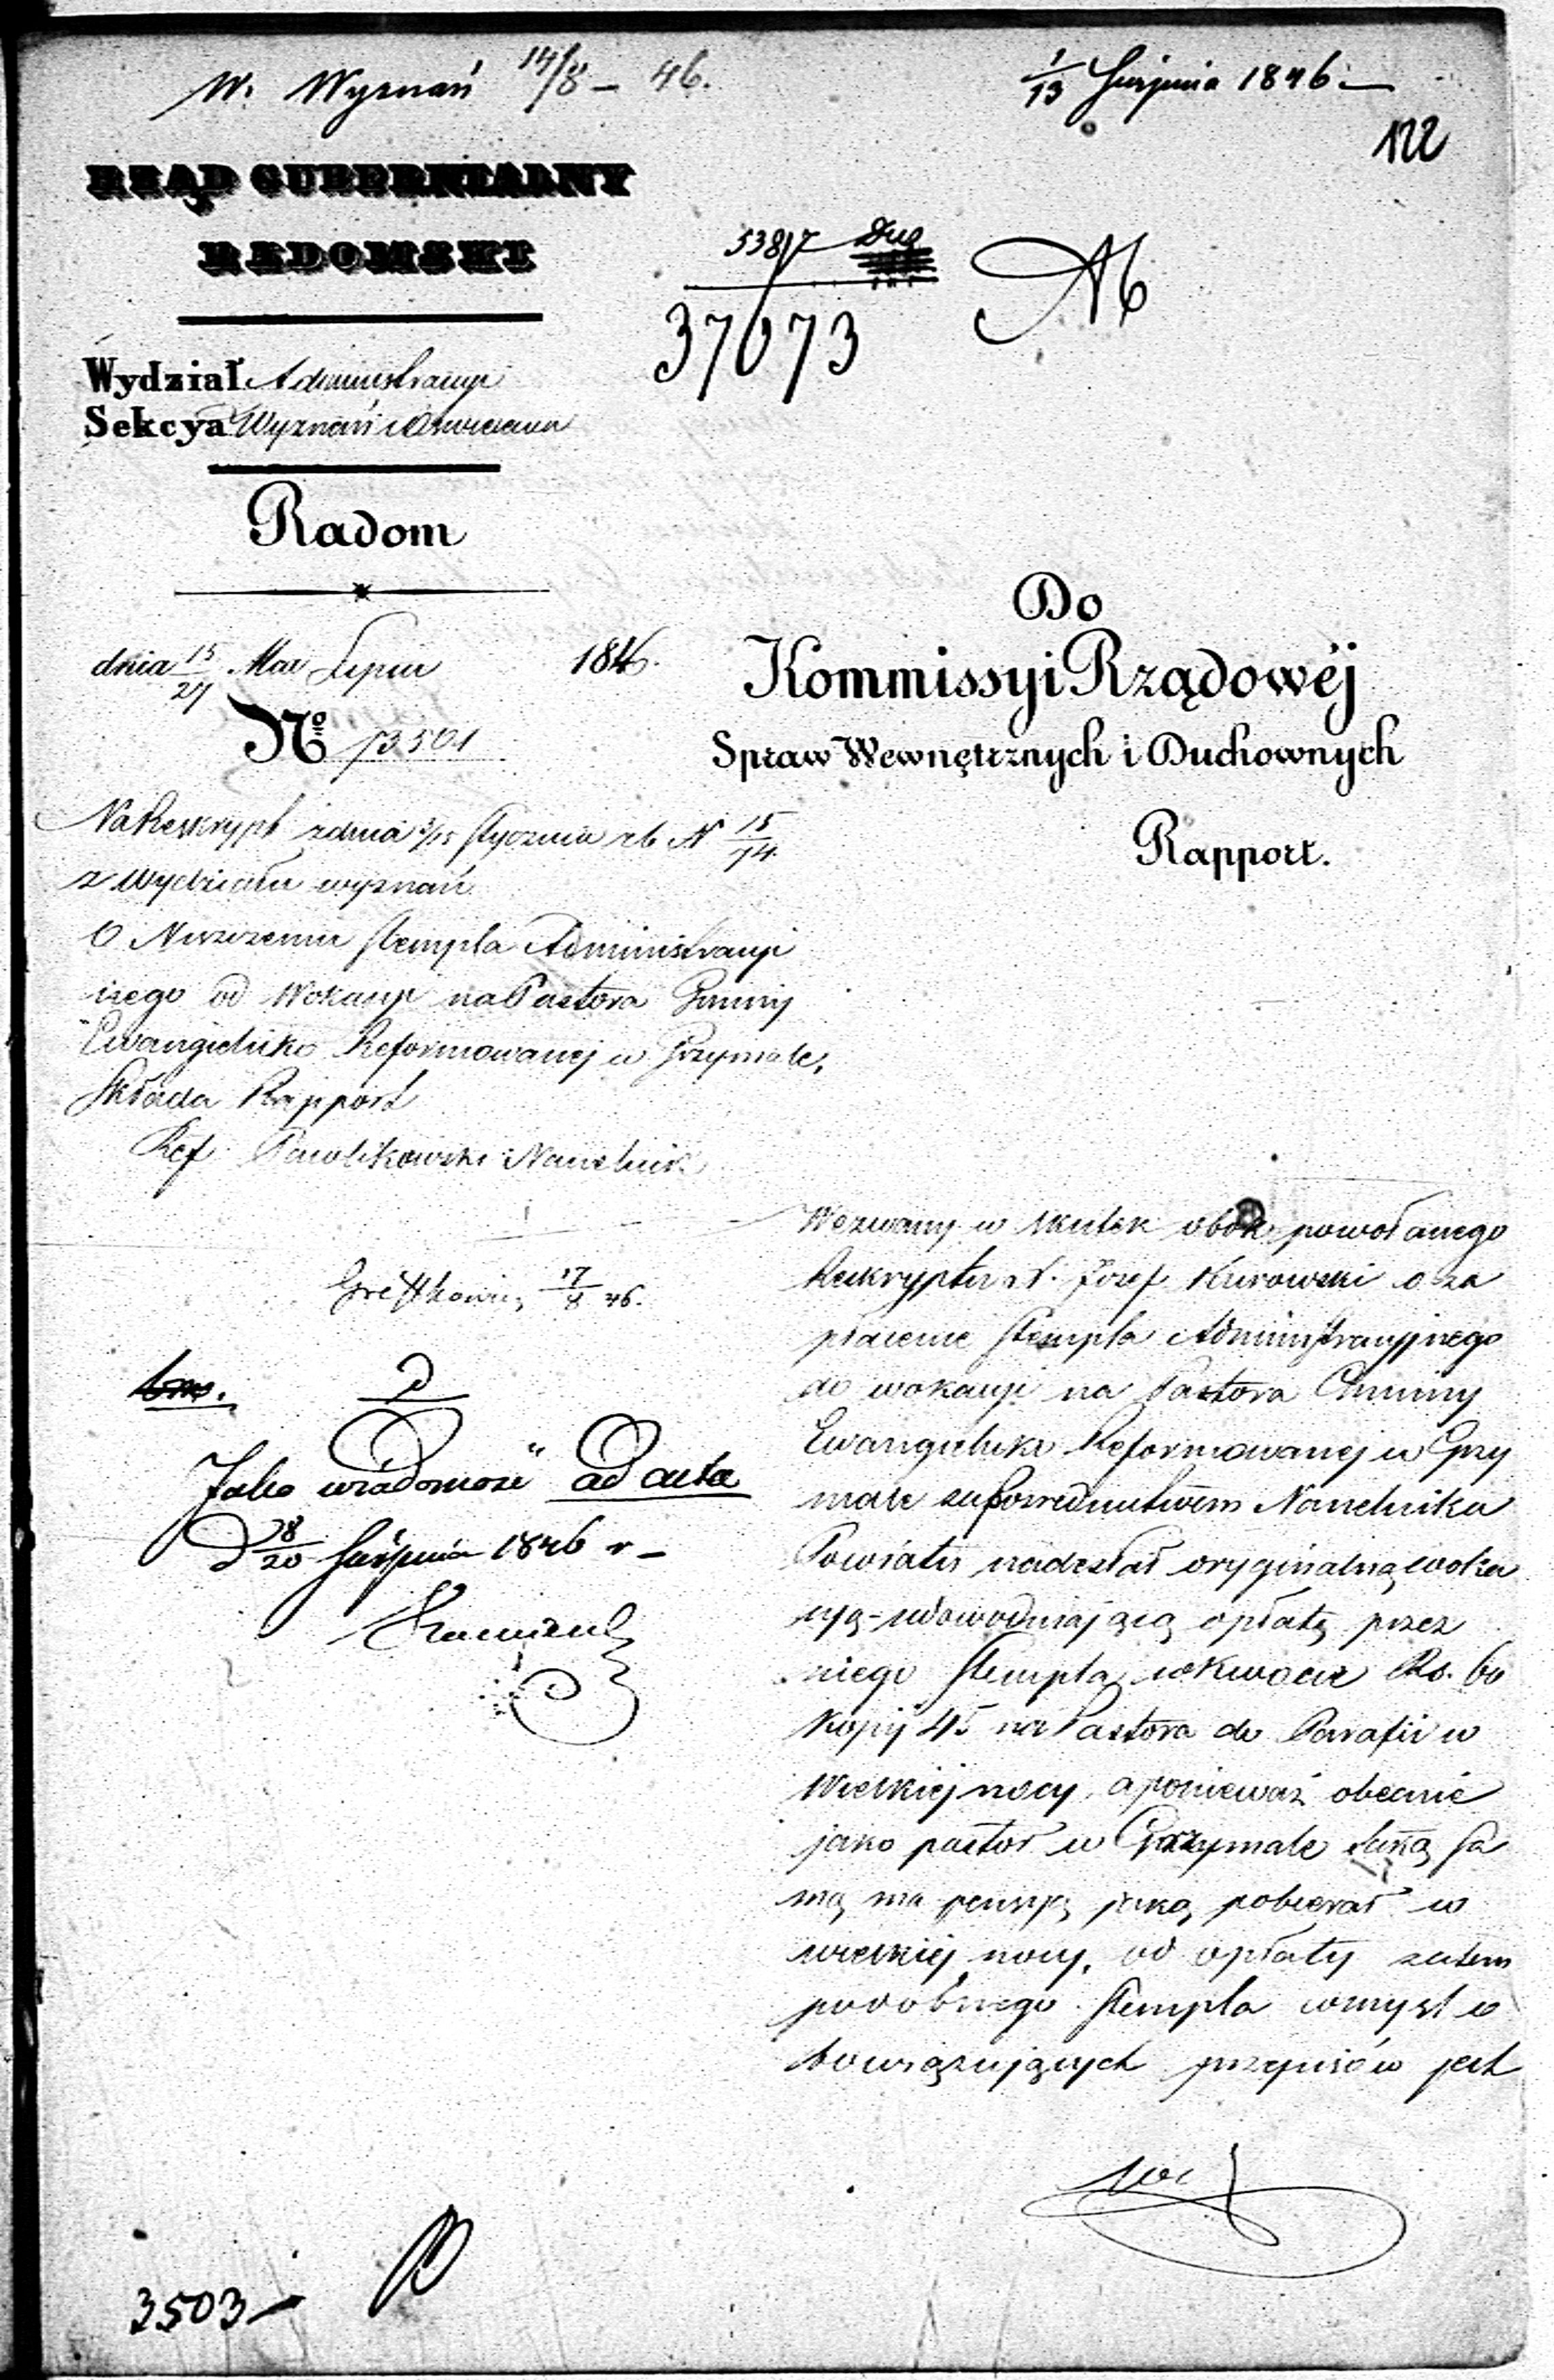 W. Wyznań 14/8 – 46.
1/13 Sierpnia 1846.–
122
RZĄD GUBERNIALNY
RADOMSKI
5387
37073
Wydział Administracyi
Sekcya Wyznań i Oświecenia
Radom
dnia 15/27 Mca Lipca 1846.
Do
Kommissyi Rządowéj
Spraw Wewnętrznych i Duchownych
Rapport.
No 73501
Na Reskrypt z dnia 3/15 Stycznia rb N 15/74
z Wydziału wyznań
O Niszczeniu stempla Administracyj
nego od Wokacyi na Pastora Gminy
Ewangielicko Reformowanej w Grzymale,
Składa Rapport
Ref Pawlikowski Naczelnik
17/8 46.
Jako wiadomość "ad acta
D 8/20 Sierpnia 1846 r –
Wezwany w skutek obok powołanego
Reskryptu X. Józef Kurowski o za
płacenie stempla Administracyjnego
do wokacyi na Pastora Gminy
Ewangielicko Reformowanej w Grzy
male za pośrednictwem Naczelnika
Powiatu nadesłał oryginalną woka
cyą – udowodniającą opłatę przez
niego stempla w kwocie Rs. 60
kopij 45 na Pastora do Parafii w
Wielkiejnocy, a ponieważ obecnie
jako pastor w Grzymale taką sa
mą ma pensyą jaką pobierał w
wielkiej nocy, od opłaty zatem
podobnego stempla w myśl o
bowiązujących przepisów jest
3503 –